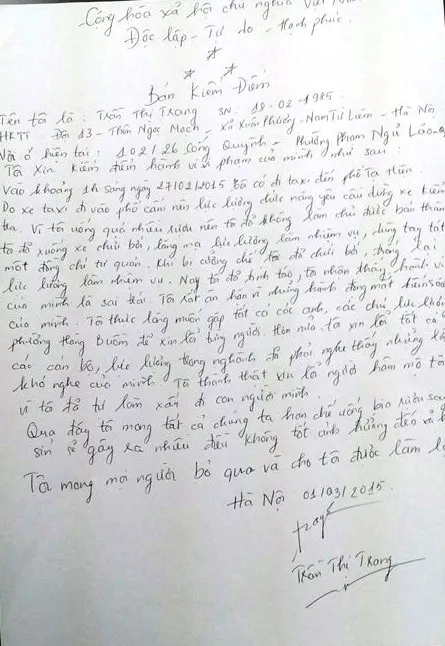 Cộng hòa xã hội chủ nghĩa Việt Nam
Độc lập - Tự do - Hạnh phúc.
Bản Kiểm Điểm
Tên tôi là : Trần Thị Trang SN : 18-02-1985.
HKTT Đội 13 - Thôn Ngọc Mạch - Xã Xuân Phương - Nam Từ Liêm - Hà Nội
Nơi ở hiện tại : 102/26 Cống Quỳnh - Phường Phạm Ngũ Lão - Q
Tôi xin kiểm điểm hành vi vi phạm của mình như sau :
Vào khoảng 1h sáng ngày 27/02/2015 tôi có đi taxi đến phố Tạ Hiện.
Do xe taxi đi vào phố cấm nên lực lượng chức năng yêu cầu dừng xe kiểm
tra. Vì tôi uống quá nhiều rượu nên tôi đã không làm chủ được bản thân
tôi đã xuống xe chửi bới, lăng mạ lực lượng làm nhiệm vụ, dùng tay tát
một đồng chí tự quản. Khi bị cưỡng chế tôi đã chửi bới, chống lại
lực lượng làm nhiệm vụ. Nay tôi đã tỉnh táo, tôi nhận thấy hành vi
của mình là sai trái. Tôi rất ân hận vì những hành động mất kiểm soát
của mình. Tôi thực lòng muốn gặp tất cả các anh, các chú lực lượng
phường Hàng Buồm để xin lỗi từng người. Hơn nữa, tôi xin lỗi tất cả
các cán bộ, lực lượng trong nghành đã phải nghe thấy những lời
khó nghe của mình. Tôi thành thật xin lỗi người hâm mộ tôi
vì tôi đã tự làm xấu đi con người mình.
Qua đây tôi mong tất cả chúng ta hạn chế uống bia rượu say
sỉn sẽ gây ra nhiều điều không tốt ảnh hưởng đến xã hội
Tôi mong mọi người bỏ qua và cho tôi được làm lại
Hà Nội 01/03/2015.
Trang
Trần Thị Trang